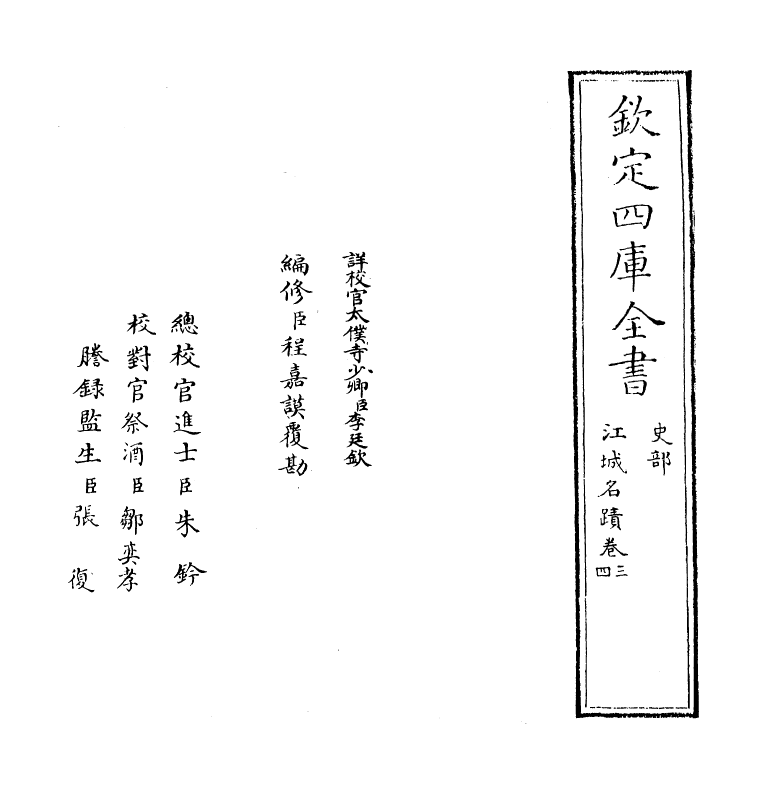 欽定四庫全書
史部
江城名蹟卷三四
詳校官太僕寺少卿臣李廷欽
編修臣程嘉謨覆勘
總校官進士臣朱鈐
校對官祭酒臣鄒奕孝
謄錄監生臣張復